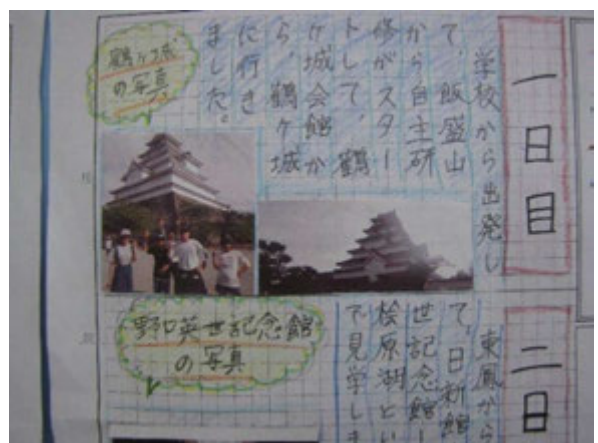 一日目
学校から出発し
て、飯盛山
から自主研
修がスター
トして、鶴
ヶ城会館か
ら、鶴ヶ城
に行き
ました。
鶴ヶ城
の写真
二日
東鳳から
て、日新館
世記念館
桧原湖とい
で見学しま
野口英世記念館
の写真